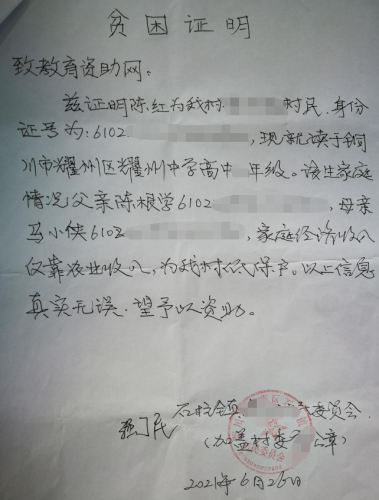 贫困证明
致教育资助网：
兹证明陈红为我村 村民，身份
证号为：6102 ，现就读于铜
川市耀州区耀州中学高中 年级。该生家庭
情况父亲陈根学6102 ，母亲
马小侠6102 ，家庭经济收入
仅靠农业收入，为我村低保户。以上信息
真实无误，望予以资助。
石柱镇 委员会
(加盖村委 公章)
2021年6月26日